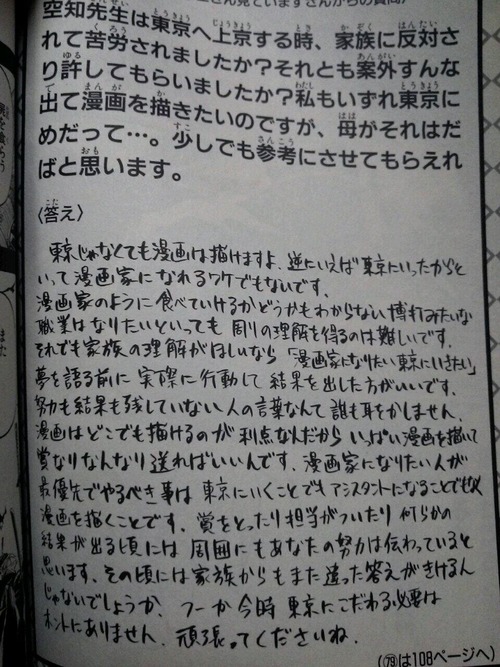 空知先生は東京へ上京する時、家族に反対さ
れて苦労されましたか？それとも案外すんな
り許してもらいましたか？私もいずれ東京に
出て漫画を描きたいのですが、母がそれはだ
めだって…。少しでも参考にさせてもらえれ
ばと思います。
〈答え〉
東京じゃなくても漫画は描けますよ、逆にいえば東京にいったからと
いって漫画家になれるワケでもないです。
漫画家のように食べていけるかどうかもわからない博打みたいな
職業はなりたいといっても周りの理解を得るのは難しいです。
それでも家族の理解がほしいなら「漫画家になりたい東京にいきたい」
夢を語る前に実際に行動して結果を出した方がいいです。
努力も結果も残していない人の言葉なんて誰も耳をかしません。
漫画はどこでも描けるのが利点なんだからいっぱい漫画を描いて
賞なりなんなり送ればいいんです。漫画家になりたい人が
最優先でやるべき事は東京にいくことでもアシスタントになることでもなく
漫画を描くことです。賞をとったり担当がついたり何らかの
結果が出る頃には周囲にもあなたの努力は伝わっていると
思います、その頃には家族からもまた違った答えがきけるん
じゃないでしょうか、つーか今時東京にこだわる必要は
ホントにありません、頑張ってくださいね、
(79は108ページへ)